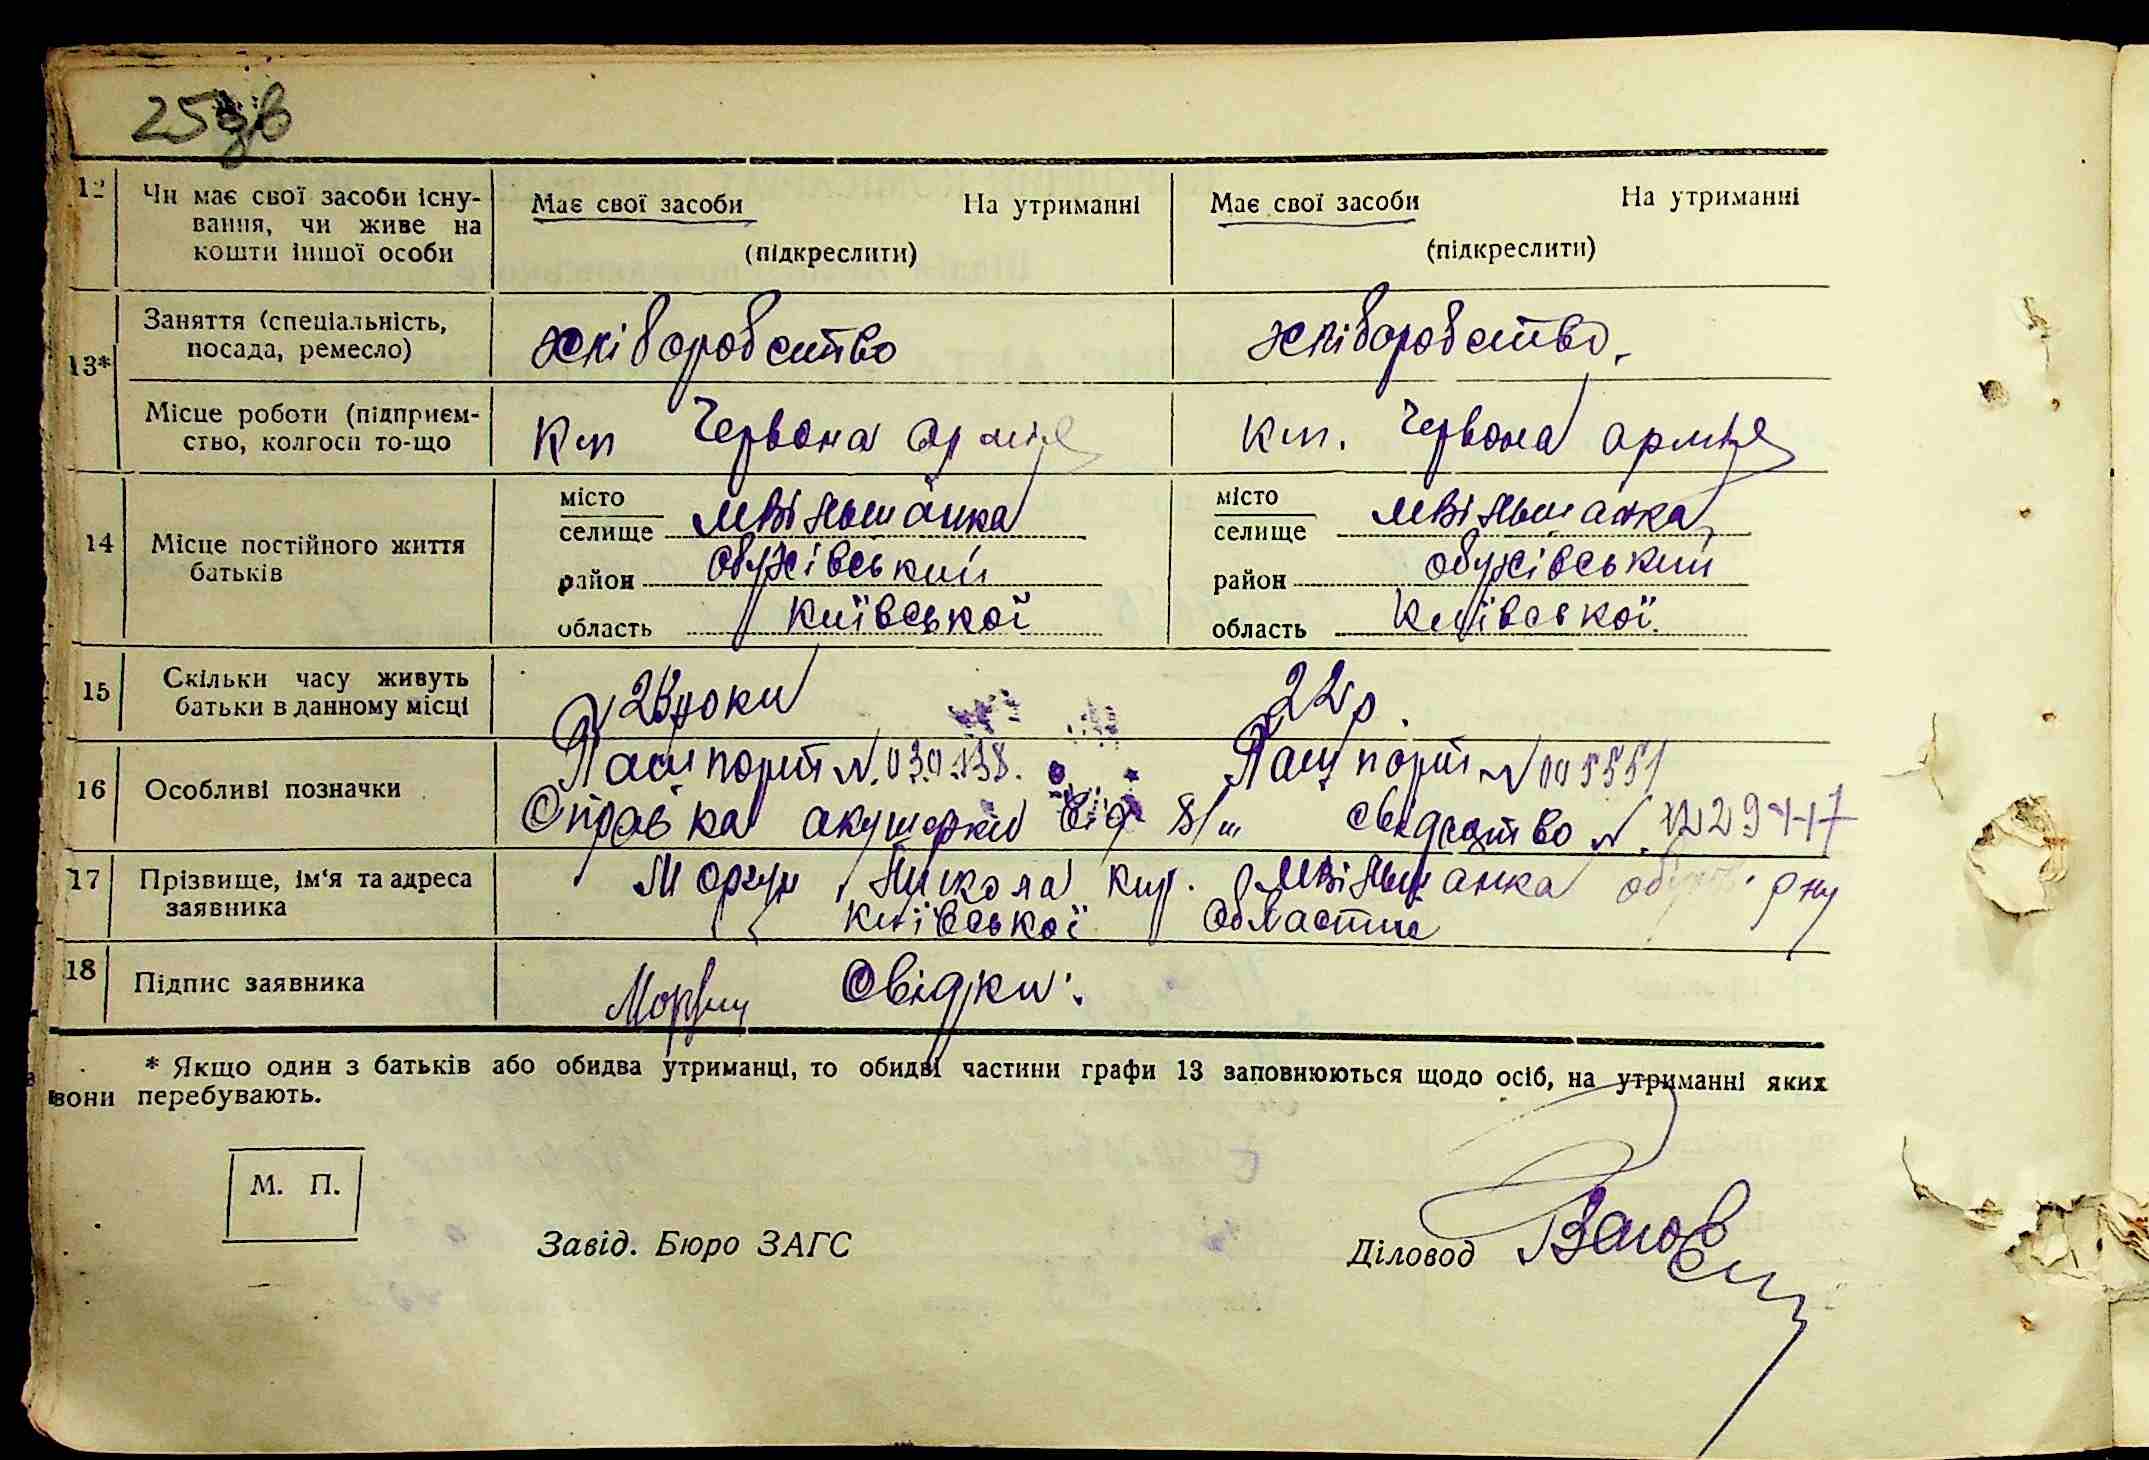 253зв
12 Чи має свої засоби існу-
вання, чи живе на
кошти іншої особи
Має свої засоби На утриманні
(підкреслити)
Має свої засоби На утриманні
(підкреслити)
13*
Заняття (спеціальність,
посада, ремесло)
хліборобство
хліборобство.
Місце роботи (підприєм-
ство, колгосп то-що
Кгп Червона армія
Кгп. Червона армія
14 Місце постійного життя
батьків
місто
селище Мвільшанка
район обухівський
область київської
місто
селище Мвільшанка
район обухівський
область київської
15 Скільки часу живуть
батьки в данному місці
23 роки
22 р.
16 Особливі позначки
Пашпорт №. 030138. Пашпорт № 005551
Справка акушерки від 8/ш свідоцтво №.
17 Прізвище, ім'я та адреса
заявника
Моргун Микола Кир. Мвільшанка обухів. р ну
київської області
18 Підпис заявника
Моргун Свідки:
* Якщо один з батьків або обидва утриманці, то обидві частини графи 13 заповнюються щодо осіб, на утриманні яких
вони перебувають.
М. П.
Завід. Бюро ЗАГС
Діловод